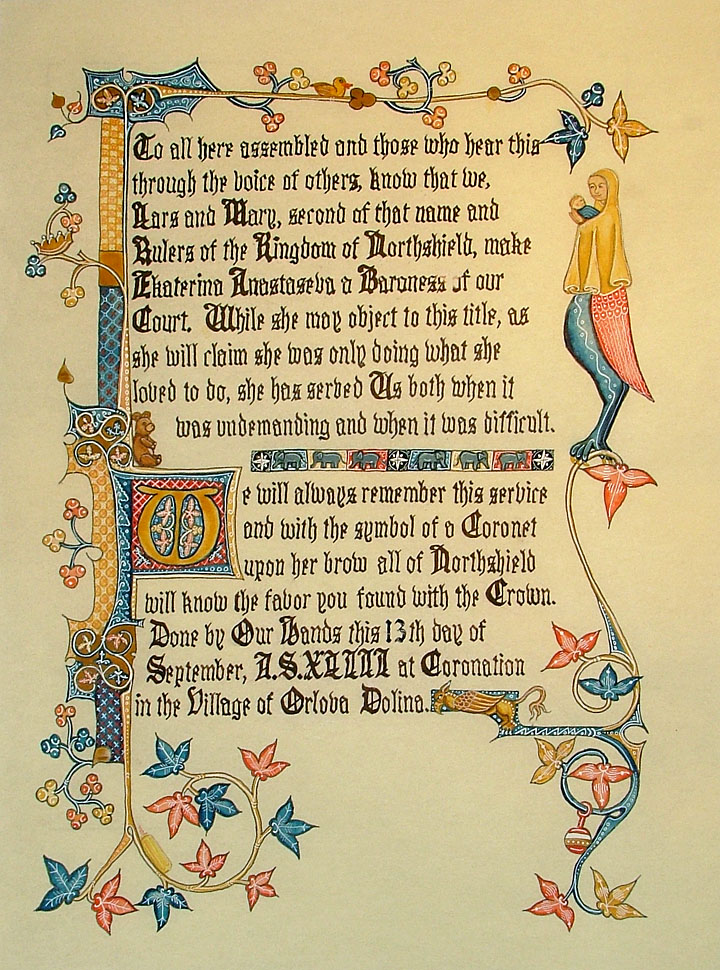 To all here assembled and those who hear this
through the voice of others, know that we,
Lars and Mary, second of that name and
Rulers of the Kingdom of Northshield, make
Ekaterina Anastaseva a Baroness of our
Court. While she may object to this title, as
she will claim she was only doing what she
loved to do, she has served Us both when it
was undemanding and when it was difficult.
We will always remember this service
and with the symbol of a Coronet
upon her brow all of Northshield
will know the favor you found with the Crown.
Done by Our Hands this 13th day of
September, A.S.XLIIII at Coronation
in the Village of Orlova Dolina.